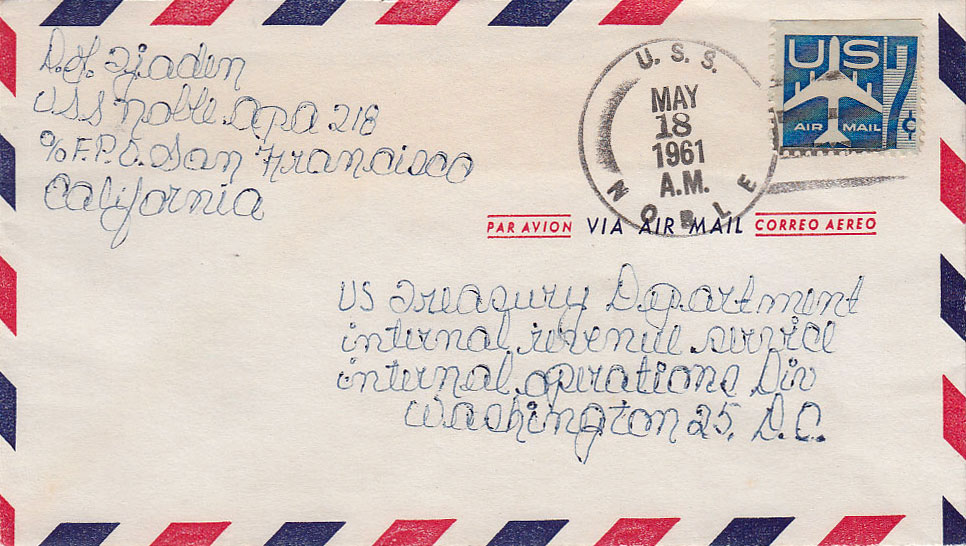 D.H. Tjaden
USS Noble APA 218
% F.P.O. San Francisco
California
U.S.S.
MAY
18
1961
A.M.
NOBLE
US
7¢
AIR MAIL
PAR AVION VIA AIR MAIL CORREO AEREO
US Treasury Department
internal revenue service
internal operations Div
Washington 25, D.C.